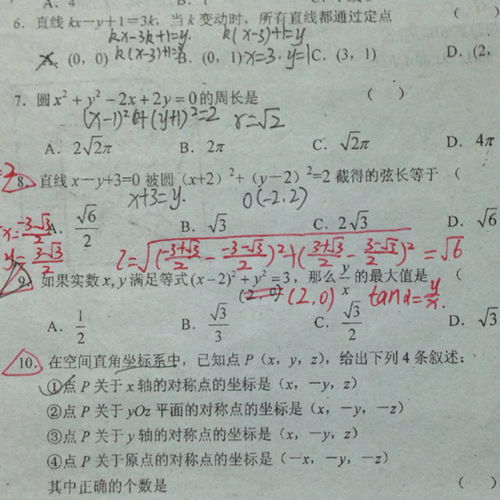 A. 4
6. 直线 kx－y＋1＝3k，当 k 变动时，所有直线都通过定点 （ ）
kx-3k+1=y. k(x-3)+1=y
k(x-3)+1=y
A. (0, 0) B. (0, 1) x=3. y=1 C. (3, 1) D. (2,
7. 圆 x²＋y²－2x＋2y＝0 的周长是 （ ）
(x-1)²+(y+1)²=2 r=√2
A. 2√2π B. 2π C. √2π D. 4π
8. 直线 x－y+3=0 被圆（x+2）²+（y－2）²=2 截得的弦长等于（
x+3=y. 0(-2,2)
A. √6/2 B. √3 C. 2√3 D. √6
x=(-3±√3)/2
y=(3±√3)/2
l=√(((-3+√3)/2 - (-3-√3)/2)²+((3+√3)/2 - (3-√3)/2)²) =√6
9. 如果实数 x, y 满足等式 (x－2)²＋y²＝3，那么 y/x 的最大值是（
(2,0) (2,0) tanα=y/x.
A. 1/2 B. √3/3 C. √3/2 D. √3
10. 在空间直角坐标系中，已知点 P（x，y，z），给出下列 4 条叙述：
①点 P 关于 x 轴的对称点的坐标是（x，－y，z）
②点 P 关于 yOz 平面的对称点的坐标是（x，－y，－z）
③点 P 关于 y 轴的对称点的坐标是（x，－y，z）
④点 P 关于原点的对称点的坐标是（－x，－y，－z）
其中正确的个数是 （ ）